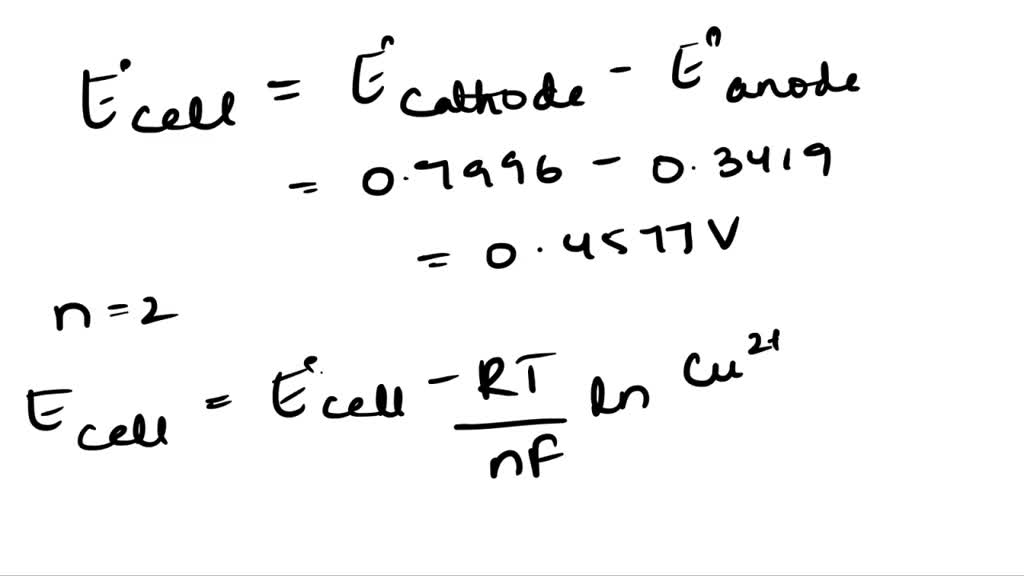 E°cell = E°cathode - E°anode
= 0.7996 - 0.3419
= 0.4577V
n=2
E cell = E°cell - RT/nF ln Cu²⁺